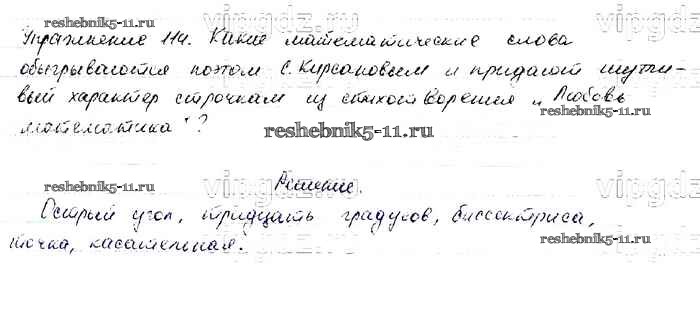 reshebnik5-11.ru vipgdz
Упражнение 114. Какие математические слова
обыгрываются поэтом С. Кирсановым и придают шутли-
vipgdz.com reshebnik5-11.ru
вый характер строчкам из стихотворения „Любовь
математика"?
reshebnik5-11.ru
reshebnik5-11.ru vipgdz.com reshebnik5-11.ru
Решение.
Острый угол, тридцать градусов, биссектриса,
точка, касательная.
vipgdz.com reshebnik5-11.ru